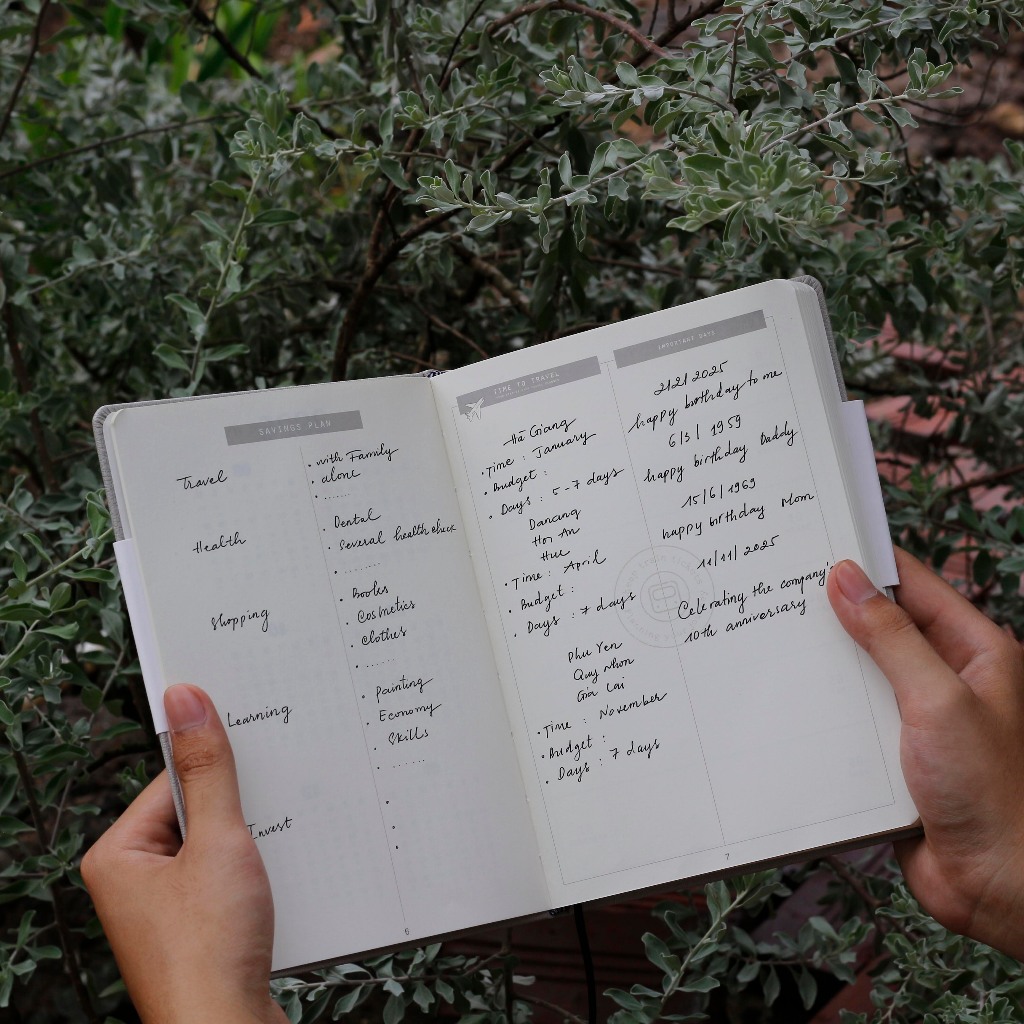 SAVINGS PLAN
Travel
• with Family
• alone
• ......
Health
• Dental
• Several health check
• ........
Shopping
• Books
• Cosmetics
• Clothes
• ......
Learning
• Painting
• Economy
• Skills
• ......
Invest
•
•
•
6
TIME TO TRAVEL
Ha Giang
• Time : January
• Budget :
• Days : 5 - 7 days
Danang
Hoi An
Hue
• Time : April
• Budget :
• Days : 7 days
Phu Yen
Quy Nhon
Gia Lai
• Time : November
• Budget :
• Days : 7 days
IMPORTANT DAYS
2121 2025
happy birthday to me
6/3/ 1959
happy birthday Daddy
15/6/1969
happy birthday Mom
11/11/2025
Celebrating the company's
10th anniversary
7